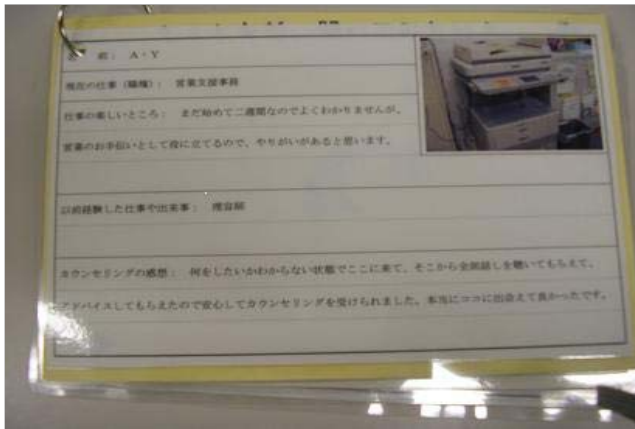 名 前： A・Y
現在の仕事（職種）： 営業支援事務
仕事の楽しいところ： まだ始めて二週間なのでよくわかりませんが、
営業のお手伝いとして役に立てるので、やりがいがあると思います。
以前経験した仕事や出来事： 理容師
カウンセリングの感想： 何をしたいかわからない状態でここに来て、そこから全部話しを聴いてもらえて、
アドバイスしてもらえたので安心してカウンセリングを受けられました。本当にココに出会えて良かったです。